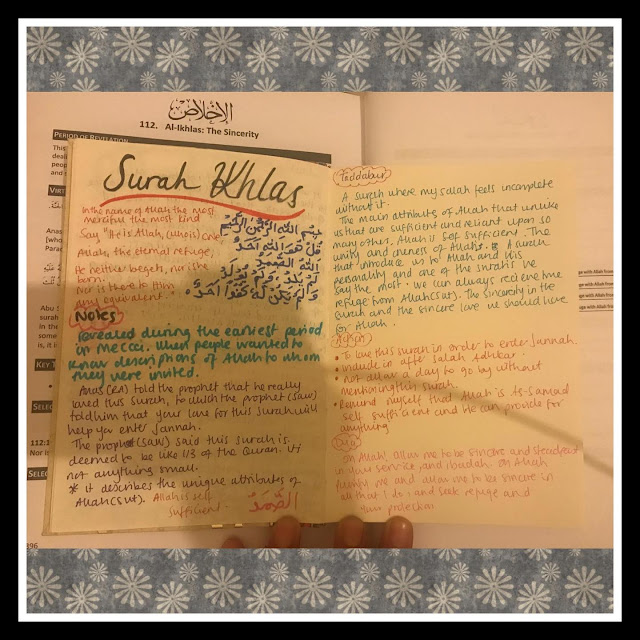 الإخلاص
112. Al-Ikhlas: The Sincerity
PERIOD OF REVELATION
This
deali
peop
VIRT
Anas
[who
Abu S
surah
in the
some
is, it i
KEY T
SELEC
112:1
Nor is
SELEC
396
Surah Ikhlas
In the name of Allah the most
merciful the most kind
Say, "He is Allah, (who is) one,
Allah, the eternal refuge,
He neither begets, nor is he
born.
Nor is there to Him
any equivalent."
بسم الله الرحمن الرحيم
قُلْ هُوَ اللهُ أَحَدٌ
اللهُ الصَّمَدُ
لَمْ يَلِدْ وَلَمْ يُولَدْ
وَلَمْ يَكُن لَّهُ كُفُوًا أَحَدٌ
Notes
revealed during the earliest period
in Mecca. When people wanted to
know descriptions of Allah to whom
they were invited.
Anas (RA) told the prophet that he really
loved this surah, to which the prophet (saw)
told him that your love for this surah will
help you enter Jannah.
The prophet (saw) said this surah is
deemed to be like 1/3 of the Quran. It's
not anything small.
* it describes the unique attributes of
Allah (swt). Allah is self
sufficient.
الصَّمَدُ
Taddabur
A surah where my salah feels incomplete
without it.
The main attributes of Allah that unlike
us that are sufficient and reliant upon so
many others. Allah is self sufficient. The
unity and oneness of Allah. A surah
that introduce us to Allah and His
personality and one of the surahs we
say the most. We can always receive true
refuge from Allah (swt). The sincerity in the
surah and the sincere love we should have
for Allah.
Action
• To love this surah in order to enter Jannah.
• include in after salah Adhkar.
• not allow a day to go by without
mentioning this surah.
• Remind myself that Allah is As-Samad
self sufficient and He can provide for
anything
Dua
Oh Allah! allow me to be sincere and steadfast
in your service and ibadah. Oh Allah
and allow me to be sincere in
all that I do, and seek refuge and
your protection